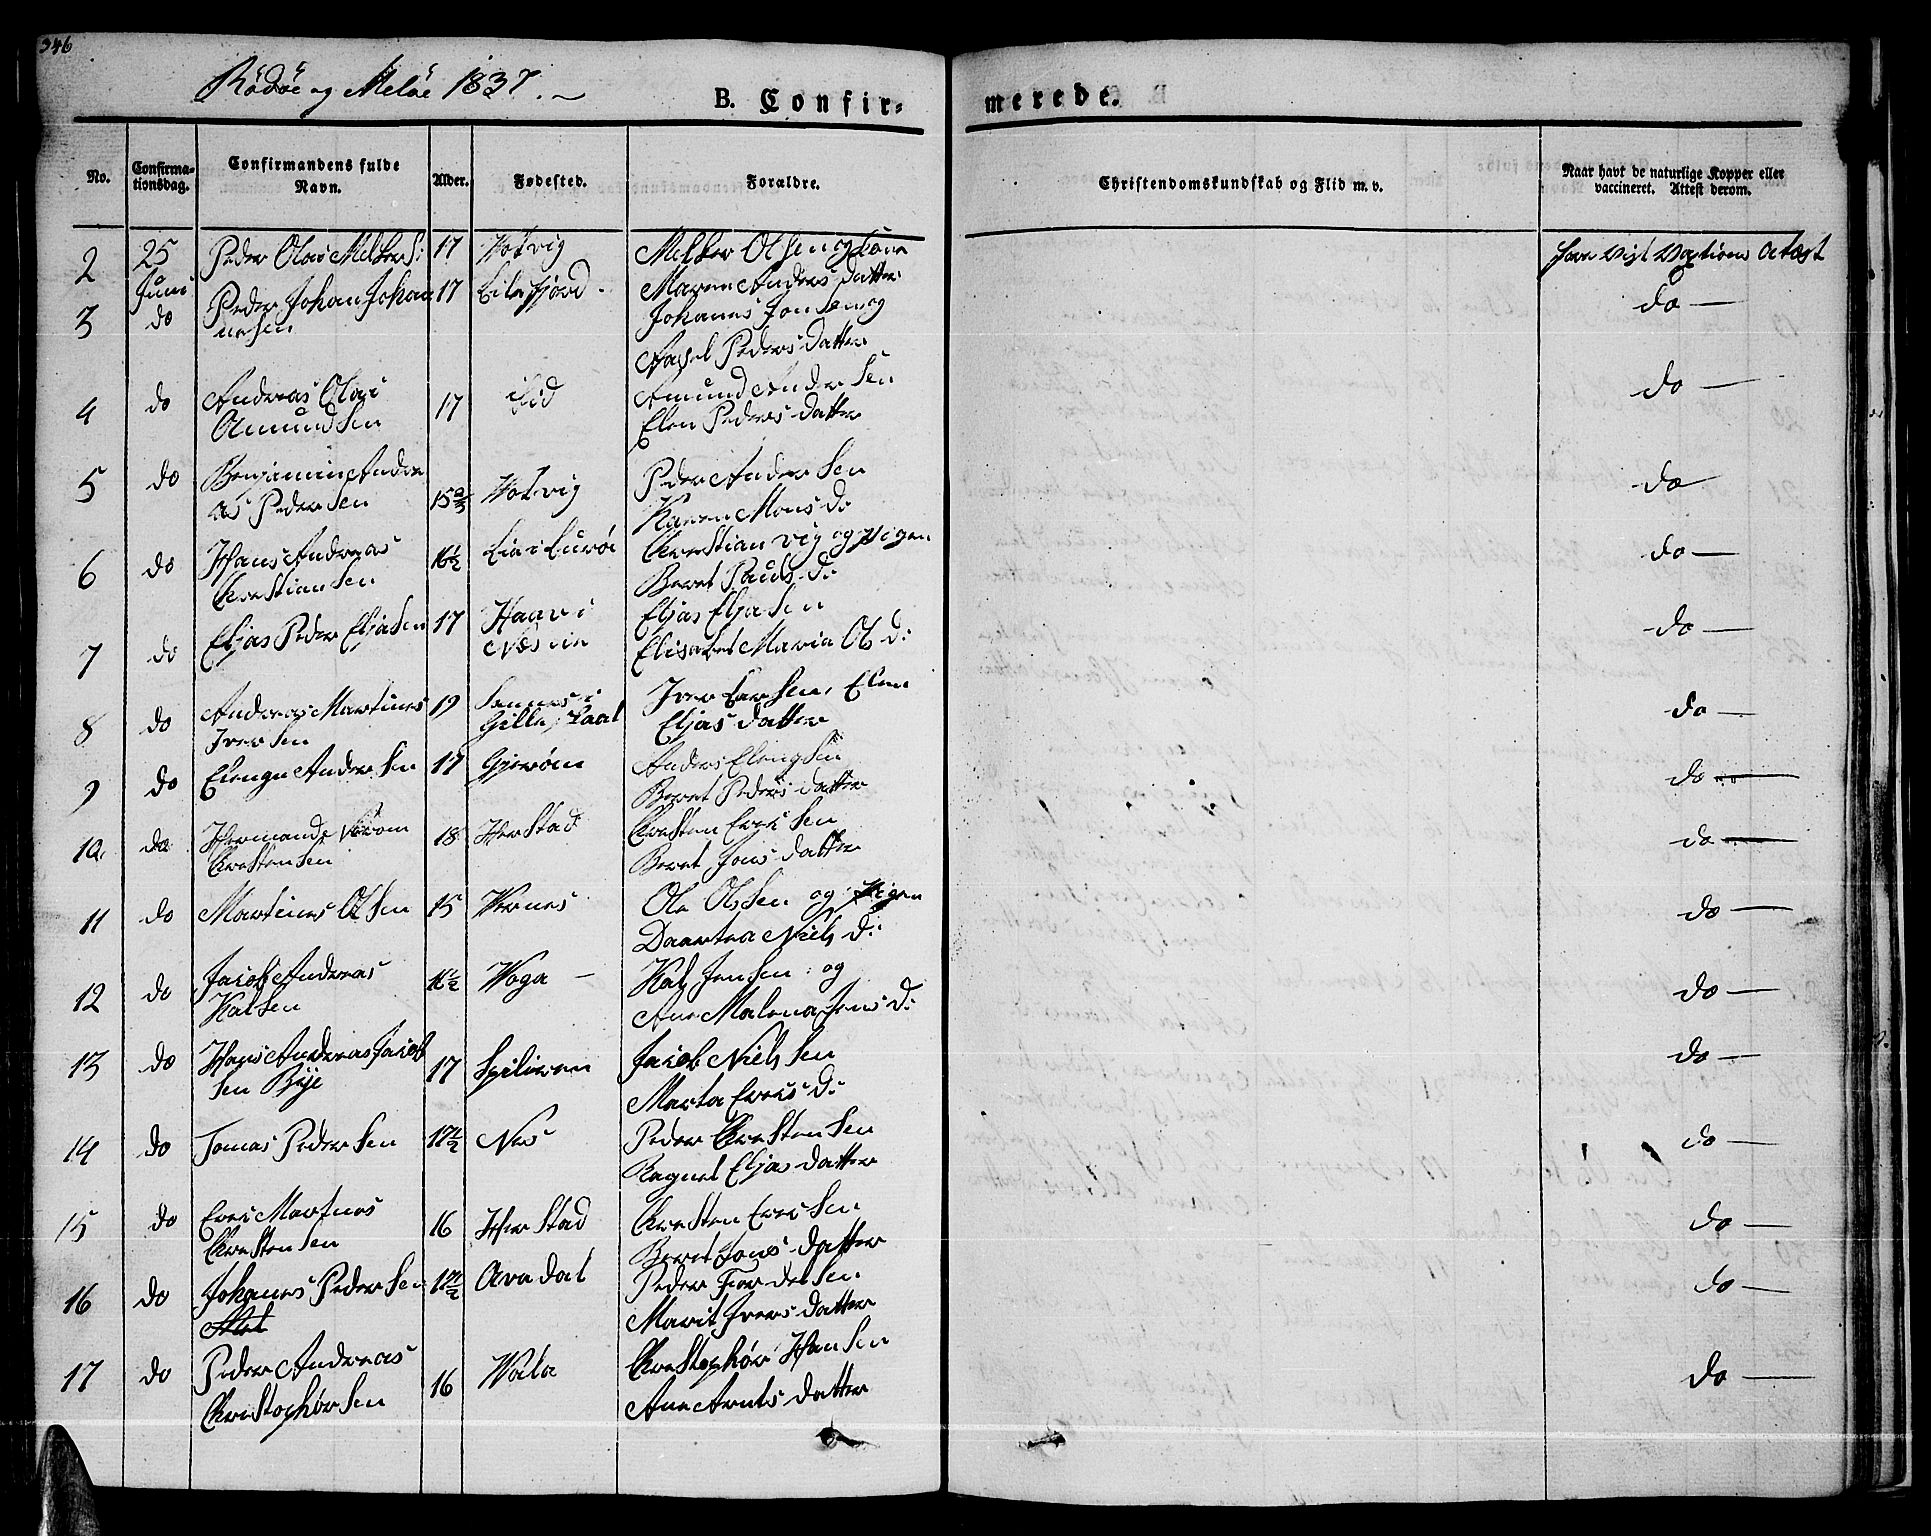 346
Rödöe og Melöe 1837.
B. Confir-
merede.
No.
Confirma-
tionsdag.
Confirmandens fulde
Navn.
Alder.
Fødested.
Forældre.
Christendomskundskab og Flid m. v.
Naar havt de naturlige Kopper eller
vaccineret. Attest derom.
2 25 Juni Peder Olai Melkers: 17 Hotvig Melker Olsen og
Maren Anders datter
do
3 do Peder Johan Johan 17
nesen
Johanes Jonsen og
Aasel Peders datter
do
4 do Andreas Olai
Amundsen 17 Eid
Amund Andersen
Elen Peders datter
do
5 do Benjamin Andre
as Pedersen 15 2/3 Hotvig
Peder Andersen
Karen Mons d:
do
6 do Hans Andreas
Christiansen 16 1/2 Lia i Luröe
Christian Vig og Pigen
Beret Pauls d:
do
7 do Eljas Peder Eljasen 17 Haav i
Nesne
Eljas Eljasen
Elisabet Maria Ols d:
do
8 do Andreas Martines
Iversen 19 Sannes i
Gilleskaal
Iver Larsen, Elen
Eljas datter
do
9 do Elengu Andersen 17 Gjeröen
Anders Elengsen
Beret Peders datter
do
10. do
Christensen 18 Herstad
Christen Ericsen
Beret Jons datter
do
11 do Martines Olsen 15 Vernes
Ole Olsen og Pigen
Daartea Niels d:
do
12 do Jacob Andreas
Halsen 16 1/2 Voga
Hals Jensen og
Ane Malena Jens d:
do
13 do Hans Andreas Jacob
sen Bye 17 Spilderen
Jacob Nielsen
Marta Erics d:
do
14 do Tomas Pedersen 17 1/2 Nes
Peder Christensen
Ragnel Eljas datter
do
15 do Eric Martines
Christensen 16 Herstad
Christen Ericsen
Beret Jons datter
do
16 do Johanes Pedersen 17 1/2 Ava dal
Peder Fordelsen
Marit Ivers datter
do
17 do Peder Andreas
Christophörsen 16 Vala
Christophör Hansen
Ane Arnts datter
do